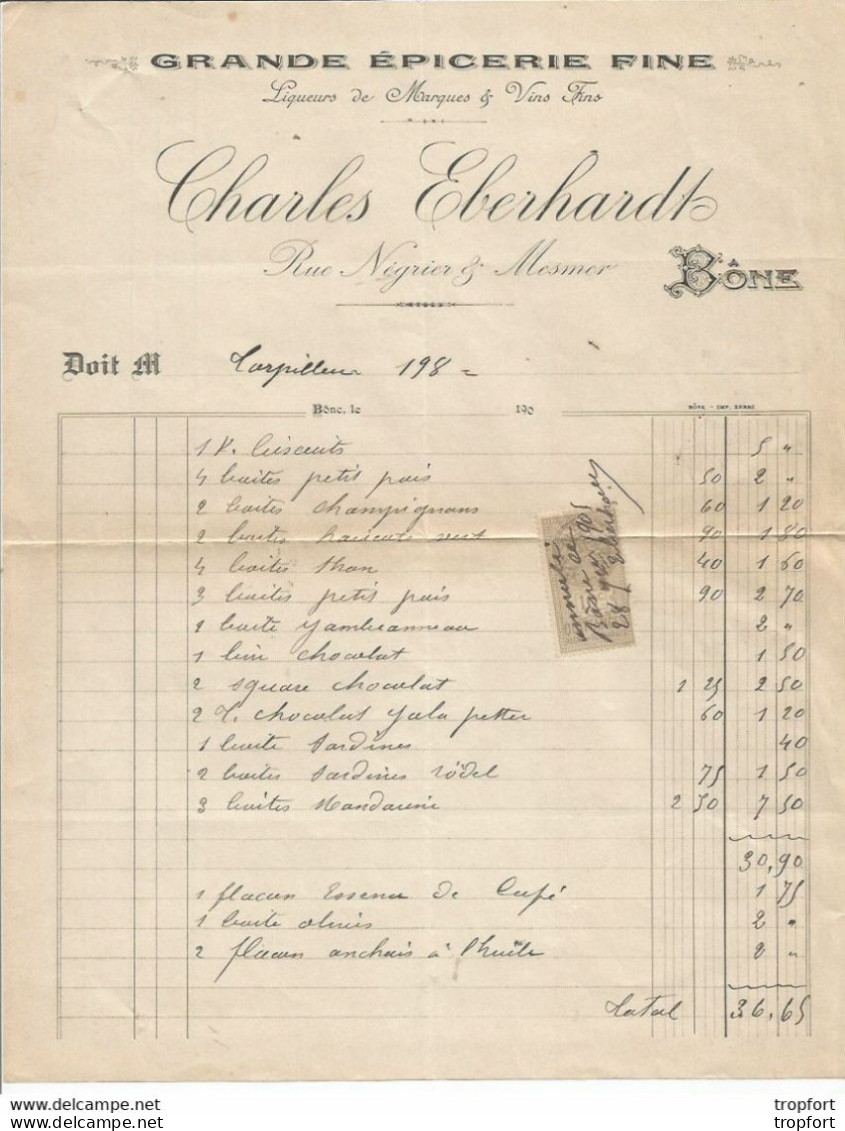 GRANDE ÉPICERIE FINE
Liqueurs de Marques & Vins Fins
Charles Eberhardt
Rue Négrier & Mesmer BÔNE
Doit M Torpilleur 198 =
Bône, le 190
1 K. biscuits 5 "
4 boites petit pois 50 2 "
2 boites champignons 60 1 20
2 boites haricots vert 90 1 80
4 boites thon 40 1 60
3 boites petit pois 90 2 70
1 boite Jambonneau 2 "
1 chocolat 1 50
2 square chocolat 1 25 2 50
2 T. chocolat Gala petter 60 1 20
1 boite Sardines 40
2 boites Sardines rödel 75 1 50
3 boites Mandarine 2 50 7 50
annulé
Bône ce
28 1905
Eberhardt
30,90
1 flacon Essence de Café 1 75
1 boite olives 2 "
2 flacon anchois à l'huile 2 "
Total 36,65
www.delcampe.net tropfort
www.delcampe.net tropfort